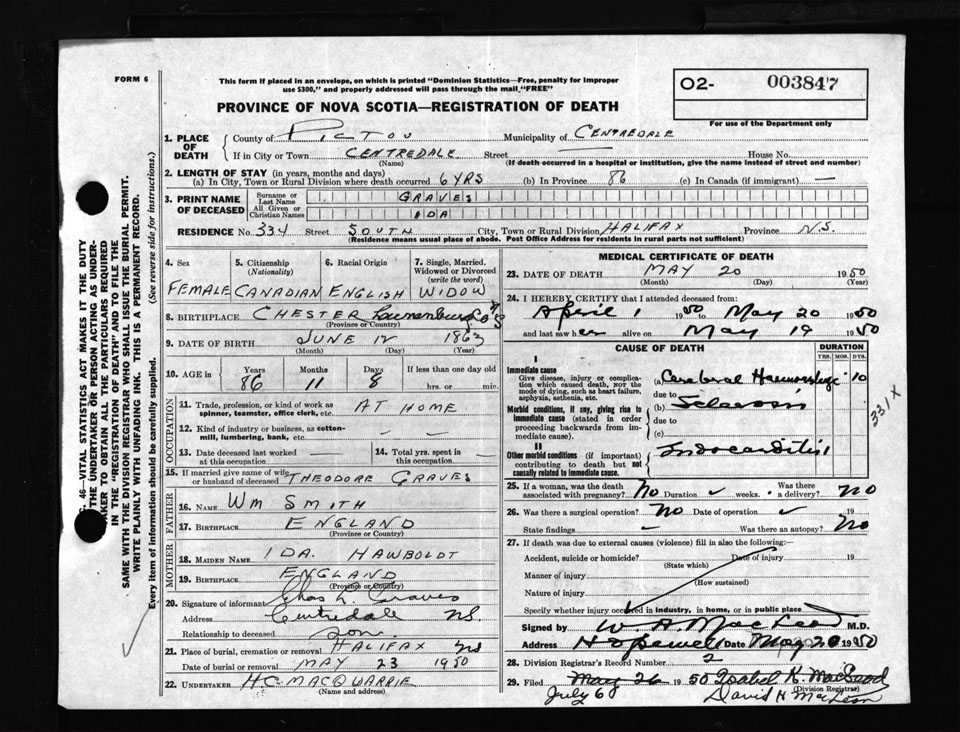 FORM 6
This form if placed in an envelope, on which is printed "Dominion Statistics—Free, penalty for improper
use $300," and properly addressed will pass through the mail "FREE"
O2- 003847
For use of the Department only
PROVINCE OF NOVA SCOTIA—REGISTRATION OF DEATH
1. PLACE OF DEATH
County of PICTOU Municipality of CENTREDALE
If in City or Town CENTREDALE Street — House No.
(Name) (If death occurred in a hospital or institution, give the name instead of street and number)
2. LENGTH OF STAY (in years, months and days)
(a) In City, Town or Rural Division where death occurred 6 YRS (b) In Province 86 (c) In Canada (if immigrant) —
3. PRINT NAME OF DECEASED
Surname or Last Name GRAVES
All Given or Christian Names IDA
RESIDENCE No. 334 Street SOUTH City, Town or Rural Division HALIFAX Province N.S.
(Residence means usual place of abode. Post Office Address for residents in rural parts not sufficient)
4. Sex FEMALE
5. Citizenship (Nationality) CANADIAN
6. Racial Origin ENGLISH
7. Single, Married, Widowed or Divorced (write the word) WIDOW
8. BIRTHPLACE CHESTER Lunenburg Co NS
(Province or Country)
9. DATE OF BIRTH JUNE 12 1863
(Month) (Day) (Year)
10. AGE in Years 86 Months 11 Days 8 If less than one day old hrs. or min.
OCCUPATION
11. Trade, profession, or kind of work as
spinner, teamster, office clerk, etc. AT HOME
12. Kind of industry or business, as cotton-
mill, lumbering, bank, etc. — —
13. Date deceased last worked at this occupation — 14. Total yrs. spent in this occupation —
15. If married give name of wife
or husband of deceased THEODORE GRAVES
FATHER
16. Name WM SMITH
17. Birthplace ENGLAND
(Province or Country)
MOTHER
18. Maiden Name IDA. HAWBOLDT
19. Birthplace ENGLAND
(Province or Country)
20. Signature of informant Chas L. Graves
Address Centredale NS.
Relationship to deceased son.
21. Place of burial, cremation or removal HALIFAX NS
Date of burial or removal MAY 23 1950
22. UNDERTAKER H.C. MACQUARRIE
(Name and address)
MEDICAL CERTIFICATE OF DEATH
23. DATE OF DEATH MAY 20 1950
(Month) (Day) (Year)
24. I HEREBY CERTIFY that I attended deceased from:
April 1 1950 to May 20 1950
and last saw her alive on May 19 1950
CAUSE OF DEATH DURATION
YRS. MOS. DYS.
I
Immediate cause
Give disease, injury or complica-
tion which caused death, NOT the
mode of dying, such as heart failure,
asphyxia, asthenia, etc.
(a) Cerebral Haemorrhage 10
due to
Morbid conditions, if any, giving rise to
immediate cause (stated in order
proceeding backwards from im-
mediate cause).
(b) Sclerosis
due to
(c)
II
Other morbid conditions (if important)
contributing to death but not
causally related to immediate cause.
Endocarditis 1
331X
25. If a woman, was the death
associated with pregnancy? No Duration weeks. Was there a delivery? No
26. Was there a surgical operation? No Date of operation 19
State findings — Was there an autopsy? No
27. If death was due to external causes (violence) fill in also the following:—
Accident, suicide or homicide? Date of injury 19
(State which)
Manner of injury
(How sustained)
Nature of injury
Specify whether injury occurred in industry, in home, or in public place
Signed by W. A. MacLeod M.D.
Address Hopewell Date May 20 1950
28. Division Registrar's Record Number 2
29. Filed May 26 1950 Isabel K. MacLeod
(Division Registrar)
July 6 David H MacLean
46—VITAL STATISTICS ACT MAKES IT THE DUTY
THE UNDERTAKER OR PERSON ACTING AS UNDER-
TAKER TO OBTAIN ALL THE PARTICULARS REQUIRED
IN THE "REGISTRATION OF DEATH" AND TO FILE THE
SAME WITH THE DIVISION REGISTRAR WHO SHALL ISSUE THE BURIAL PERMIT.
WRITE PLAINLY WITH UNFADING INK. THIS IS A PERMANENT RECORD.
Every item of information should be carefully supplied. (See reverse side for instructions.)